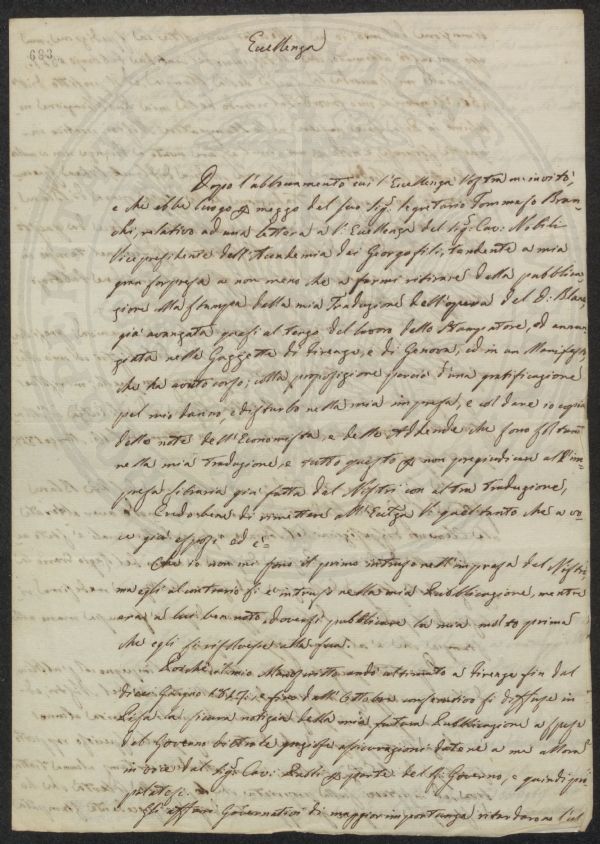 683
Eccellenza
Dopo l'abboccamento cui l'Eccellenza Vostra m'invitò,
e che ebbe luogo per mezzo del suo Sigr. Segretario Tommaso Bian-
chi, relativo ad una lettera a l'Eccellenza del Sigr. Cav. Nobili
Vicepresidente dell'Accademia dei Georgofili, tendente a mia
gran sorpresa a non meno che a farmi ritirare dalla pubblica-
zione alla stampa della mia Traduzione dell'opera del D.
già avanzata quasi al terzo del lavoro dello Stampatore, ed annun-
ziata nelle Gazzette di Firenze, e di Genova, ed in un Manifesto
che ha avuto corso; colla proposizione d'una gratificazione
pel mio danno, e disturbo nella mia impresa, e col dare io copia
delle note dell'Economista, e delle Addende che sono
nella mia Traduzione, e tutto questo per non pregiudicare all'im-
presa libraria già fatta dal Nistri con altra Traduzione,
Credo bene di rimettere all' quel tanto che a vo-
ce già esposi ed è =
Che io non mi sono il primo intruso nell'impresa del Nistri,
ma egli al contrario si è intruso nella mia Pubblicazione, mentre
era a lui ben noto, doversi pubblicare la mia molto prima
che egli si risolvesse alla sua.
Poiché il mio Manoscritto andò ultimato a Firenze fin dal
dieci Giugno e fino dall'Ottobre consecutivo si diffuse in
Pisa la sicura notizia della mia futura Pubblicazione a spese
del Governo dietro le assicurazioni datone a me allora
in voce dal Sigr. Cav. per parte del Governo, e quindi
Gli affari Governativi di maggior importanza ritardarono l'ul